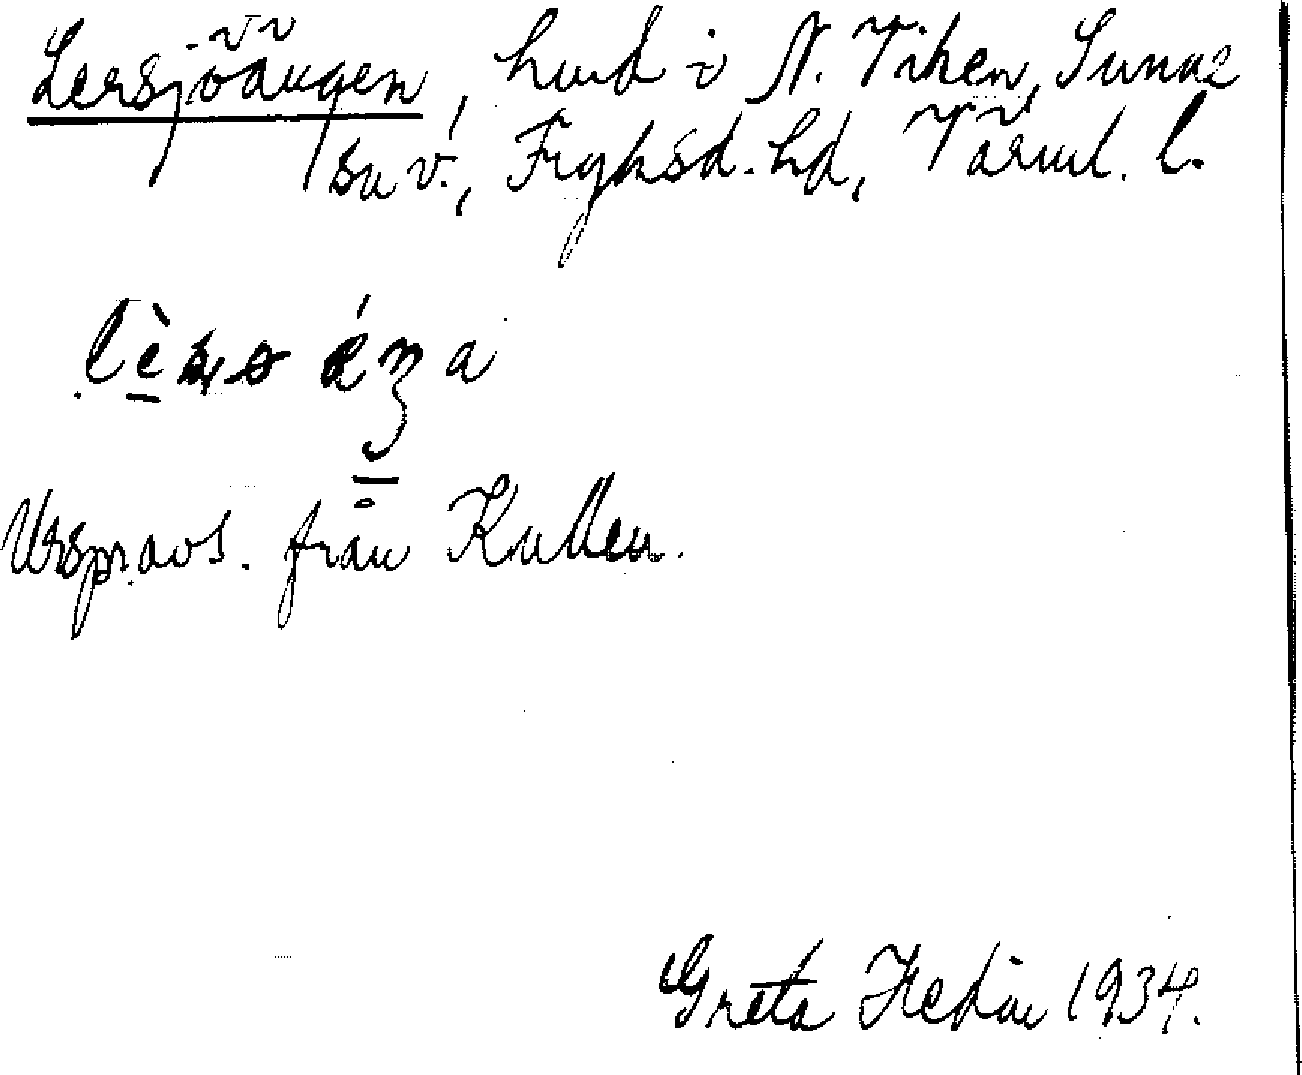 Lersjöängen, hmd i N. Viken, Sunne
sn v., Fryksd. hd, Värml. l.
Urspravs. från Kullen.
Greta Hedin 1934.